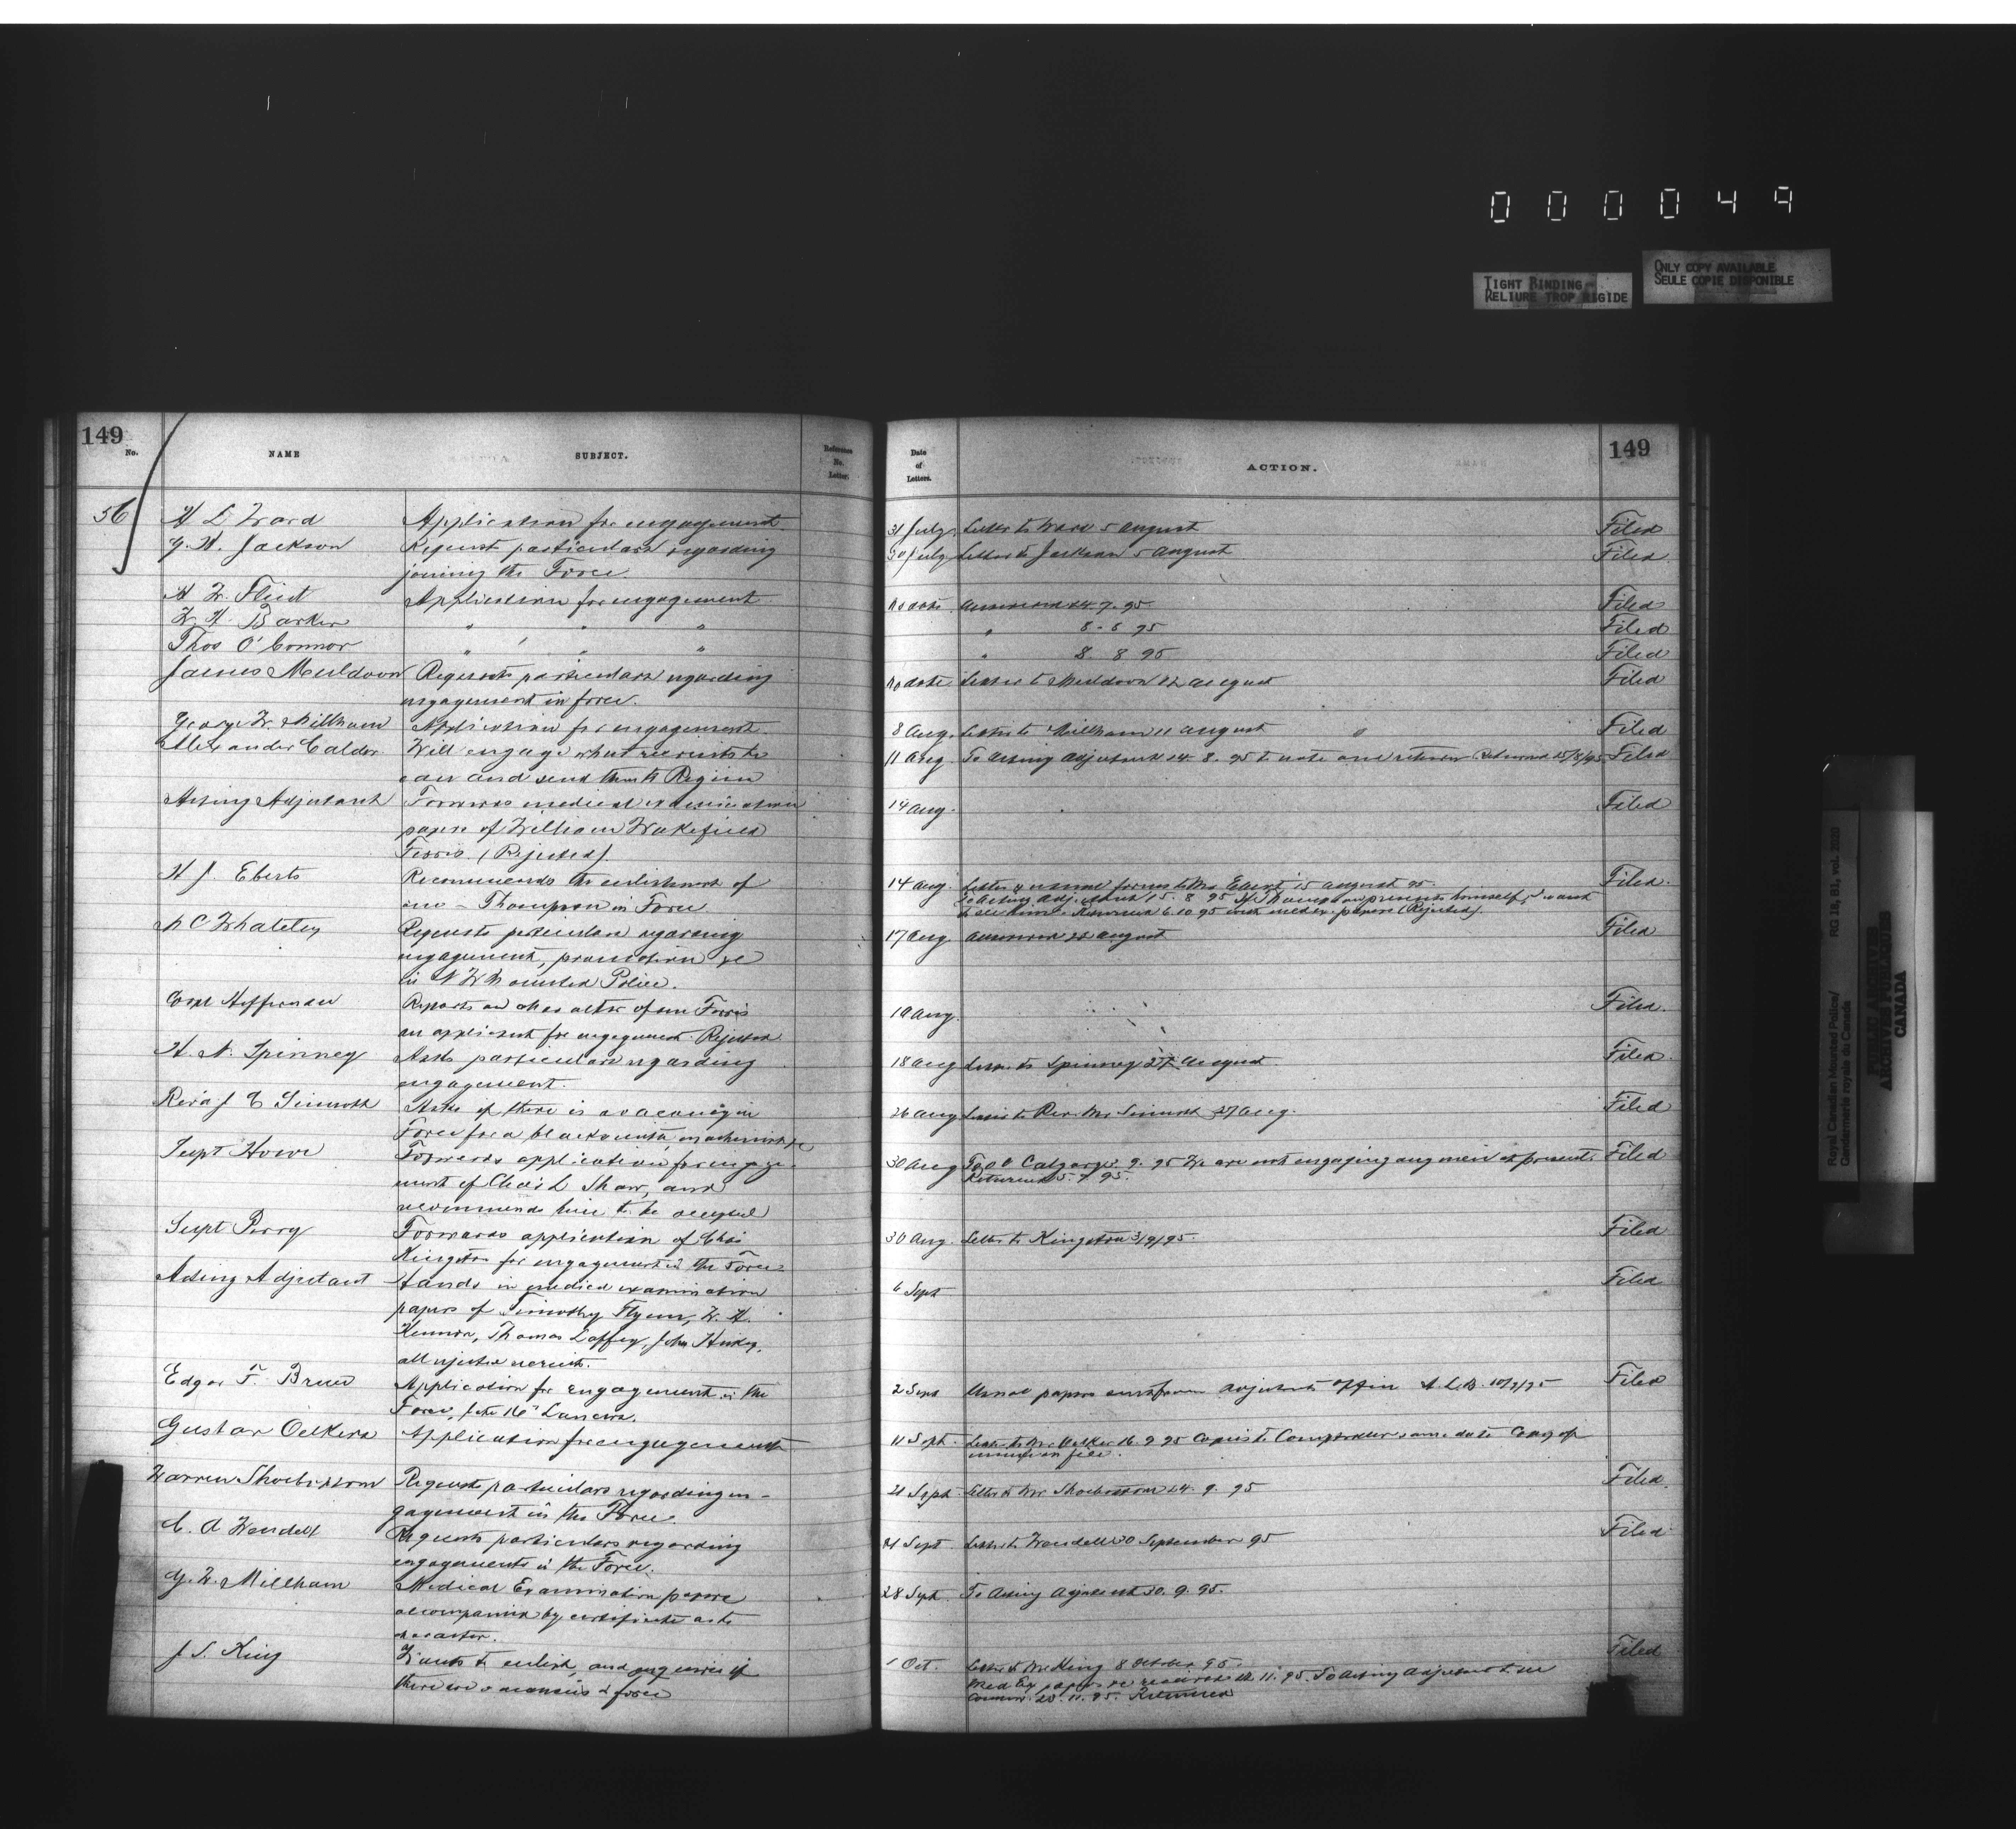 0 0 0 0 4 9
TIGHT BINDING
RELIURE TROP RIGIDE
ONLY COPY AVAILABLE
SEULE COPIE DISPONIBLE
149
No.
NAME
SUBJECT.
Reference No. Letter.
56
H L Ward
Application for engagement.
G. H. Jackson
Request particulars regarding
joining the Force.
H W. Flint
Application for engagement
W. H. Barker
" " "
Thos O'Connor
" " "
James Muldoon
Requests particulars regarding
engagement in force.
George W. Millham
Application for engagement
Alexander Calder
Will engage what recruits he
can and send them to Regina
Acting Adjutant
Forwards medical examination
papers of William Wakefield
Ferris. (Rejected).
H J. Eberts
Recommends the enlistment of
one - Thompson in Force
Whateley
Requests particulars regarding
engagement, promotion &c
in N W Mounted Police.
Corpl Heffernan
Reports on character of one Ferris
an applicant for engagement. Rejected
H. N. Spinney
Asks particulars regarding
engagement.
Revd J
Asks if there is a vacancy in
Force for a blacksmith, machinist &c
Supt Howe
Forwards application for engage-
ment of Chas L Shaw, and
recommends him to be accepted
Supt Perry
Forwards application of Chas
Kingston for engagement in the Force
Acting Adjutant
Hands in medical examination
papers of Timothy Flynn, W. H.
Kennon, Thomas Laffey, John
all rejected recruits.
Edgar F.
Application for engagement in the
Force, late 16th Lancers.
Gustav Oelkers
Application for engagement
Warren Shoebottom
Requests particulars regarding en-
gagement in the Force.
C. A Wendell
Requests particulars regarding
engagements in the Force.
G. W. Millham
Medical Examination papers
accompanied by certificate as to
character.
J S. King
Wants to enlist, and enquires if
there are vacancies in force
149
Date of Letters.
ACTION.
31 July Letter to Ward 5 August Filed
30 July Letter to Jackson 5 August Filed
No date Answered 24. 7. 95 Filed
" 8 - 8 95 Filed
" 8 8 95 Filed
No date Letter to Muldoon 12 August Filed
8 Aug. Letter to Millham 11 August Filed
11 Aug To Acting Adjutant 14. 8. 95 to note and return Returned 15/8/95 Filed
14 Aug. Filed
14 Aug. Letter & usual forms to Mr Ebert 15 August 95. Filed
To Acting Adjutant 15. 8 95 If Thompson presents himself, I want
to see him. Returned 6. 10 95 with medex. papers (Rejected).
17 Aug. Answered 22 August Filed
19 Aug. Filed
18 Aug Letter to Spinney 27 August Filed
26 Aug Letter to Rev. Mr 27 Aug. Filed
30 Aug To O C Calgary 9. 95 We are not engaging any men at present. Filed
Returned 5. 9. 95.
30 Aug. Letter to Kingston 3/9/95. Filed
6 Sept Filed
2 Sept Usual papers sent from Adjutants Office 10/9/95 Filed
11 Sept. Letter to Mr Oelker 16. 9 95 Copies to Comptroller same date Copy of
21 Sept. Letter to Mr Shoebottom 24. 9. 95 Filed.
21 Sept Letter to Wendell 30 September 95 Filed
28 Sept. To Acting Adjutant 30. 9. 95.
1 Oct. Letter to Mr King 8 October 95. Filed
Med Ex papers received 11. 95. To Acting Adjutant to see
Commr. 20. 11. 95. Returned
Royal Canadian Mounted Police/
Gendarmerie royale du Canada
RG 18, B1, vol. 2020
PUBLIC ARCHIVES
ARCHIVES PUBLIQUES
CANADA